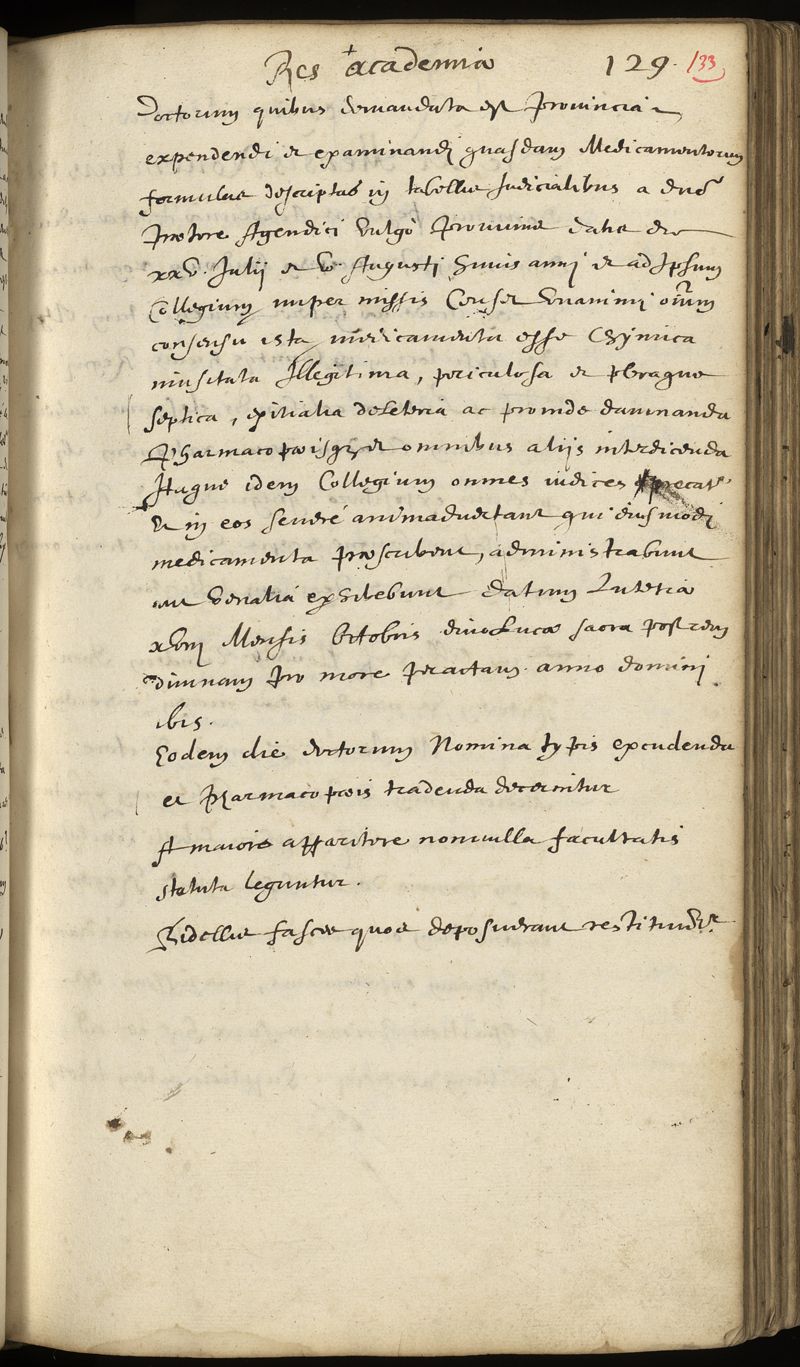 Res academiæ 129. 133
Doctorum quibus demandata est prouincia
expendendi et examinandi quasdam Medicamentorum
formulas descriptas in tabellis Iudicialibus a dnō
prætore Agendici vulgò prouuine datis die
xxv. Julij et v. Augusti huius anni et ad Ipsum
Collegium nuper missis Censet vnanimi
consensu ista medicamenta esse Chymica
inusitata Illegitima, periculosa et pleraque
septica, exitialia deleteria ac proinde damnanda
Pharmacopœisq; et omnibus aliis interdicenda
Itaque idem Collegium omnes iudices precatr
vt in eos seuerè animaduertant qui eiusmodi
medicamenta præscribent, administrabunt
aut venalia exhibebunt datum Lutetiæ
mensis Octobris diuo Lucæ sacra post rem
diuinam pro more peractam. anno domini
ibis.
Eodem die doctorum Nomina typis excudenda
et Pharmacopœis tradenda decernitur
A maiore apparitore nonnulla facultatis
statuta leguntur.
Bidellis fasces quos deposuerant